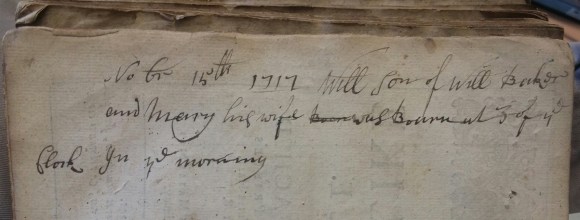 Nobr 15th 1717 Will Son of Will Baker
and Mary his wife was Bourn at 3 of ye
Clock In ye morning